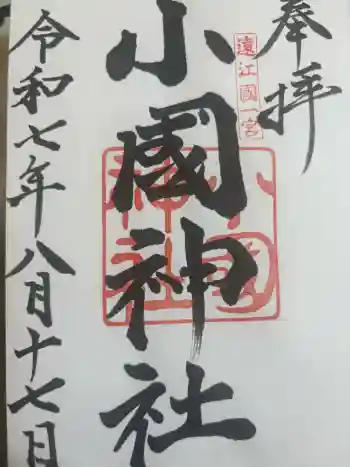 奉拝
遠江國一宮
小國神社
小國神社
令和七年八月十七日